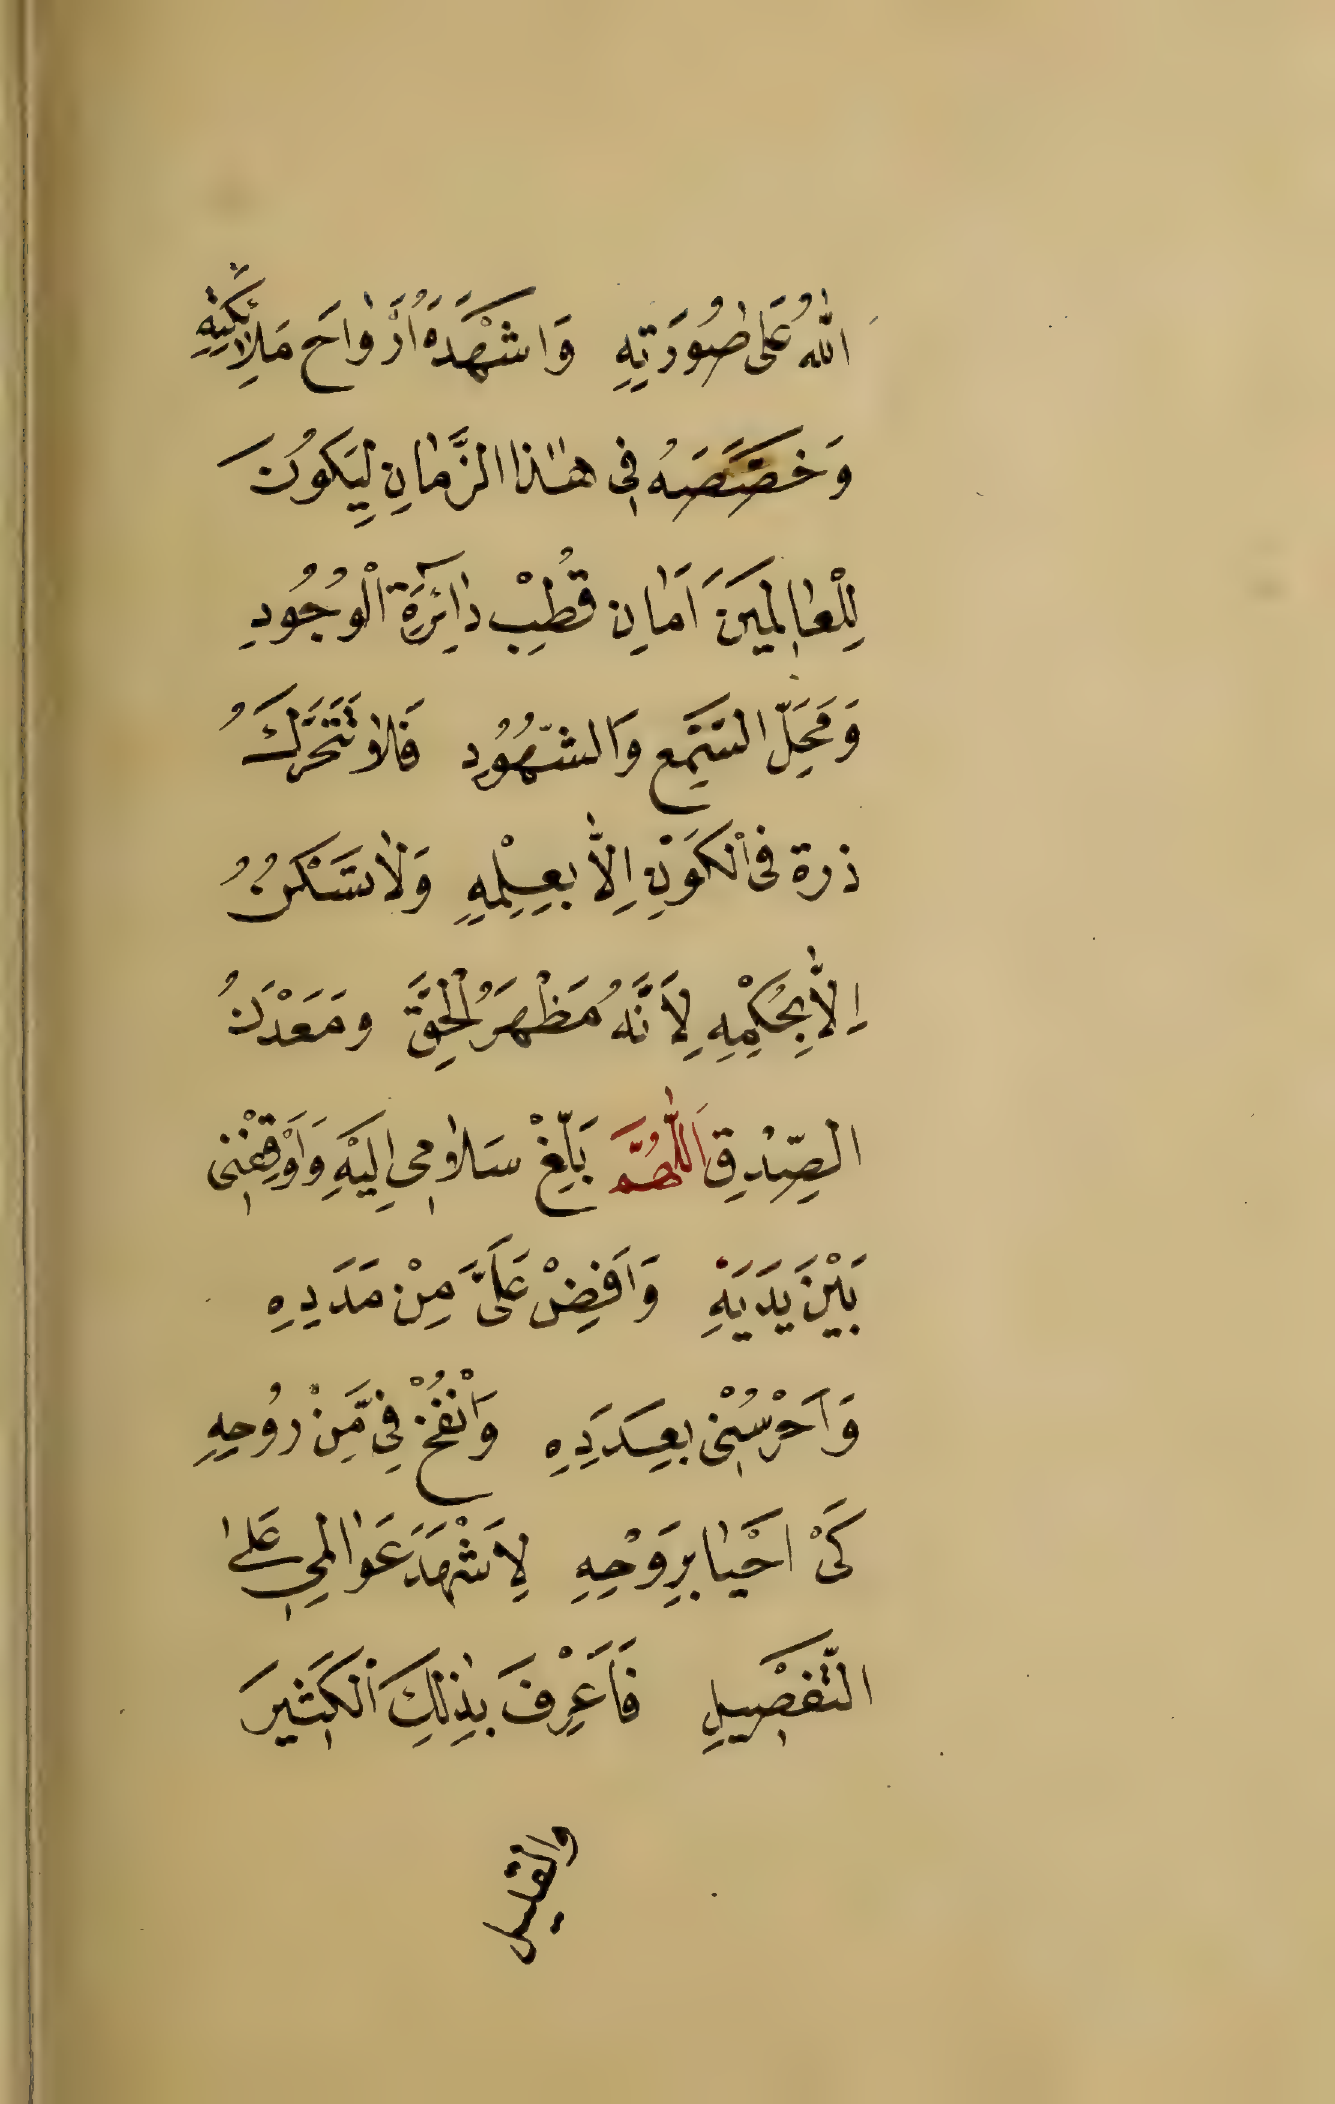 اللهُ عَلىٰ صُورَتِهِ وَاشْهَدَهُ اَرْوٰاحَ مَلاٰئِكَتِهِ
وَخَصَّصَهُ فِى هٰذا الزَّمٰانِ لِيَكُونَ
لِلْعٰالَمِينَ اَمٰانِ قُطْبِ دٰائِرَةِ الْوُجُودِ
وَمَحَلِّ السَّمْعِ وَالشُّهُودِ فَلاٰ تَتَحَرَّكُ
ذرة فى الْكَوْنِ اِلاّٰ بِعِلْمِهِ وَلاٰ تَسْكُنُ
اِلاّٰ بِحُكْمِهِ لِاَنَّهُ مَظْهَرُ الْحَقِّ ومَعْدَنُ
الصِّدْقِ اَللّٰهُمَّ بَلِّغْ سَلاٰمِى اِلَيْهِ وَاَوْقِفْنِى
بَيْنَ يَدَيْهِ وَاَفِضْ عَلَىَّ مِنْ مَدَدِهِ
وَاَحْرُسْنِى بِعَدَدِهِ وَاْنْفُخْ فِىَّ مِنْ رُوحِهِ
كَىْ اَحْيٰا بِرَوْحِهِ لِاَشْهَدَ عَوٰالِمِى عَلىٰ
التَّفْصِيلِ فَاَعْرِفَ بِذٰلِكَ الْكَثِيرَ
والقليل